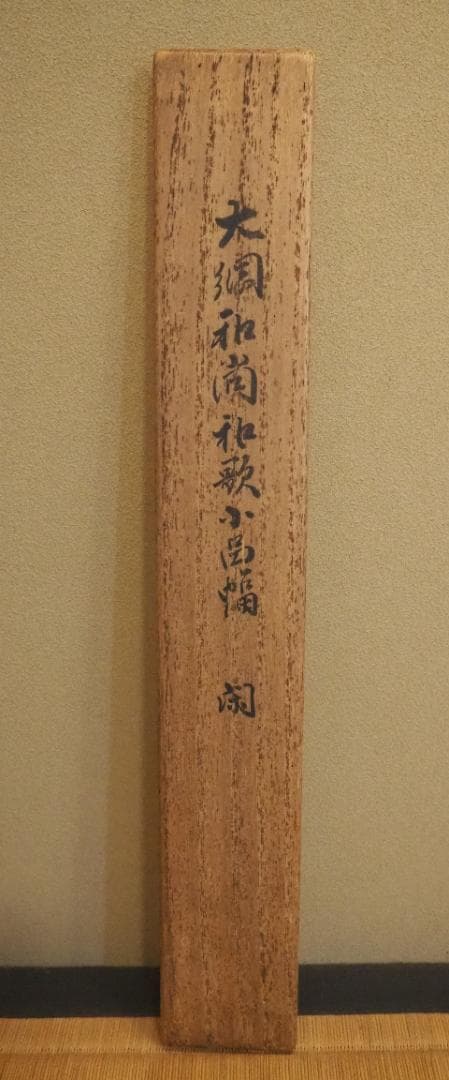 大綱和尚和歌小色幅 閑